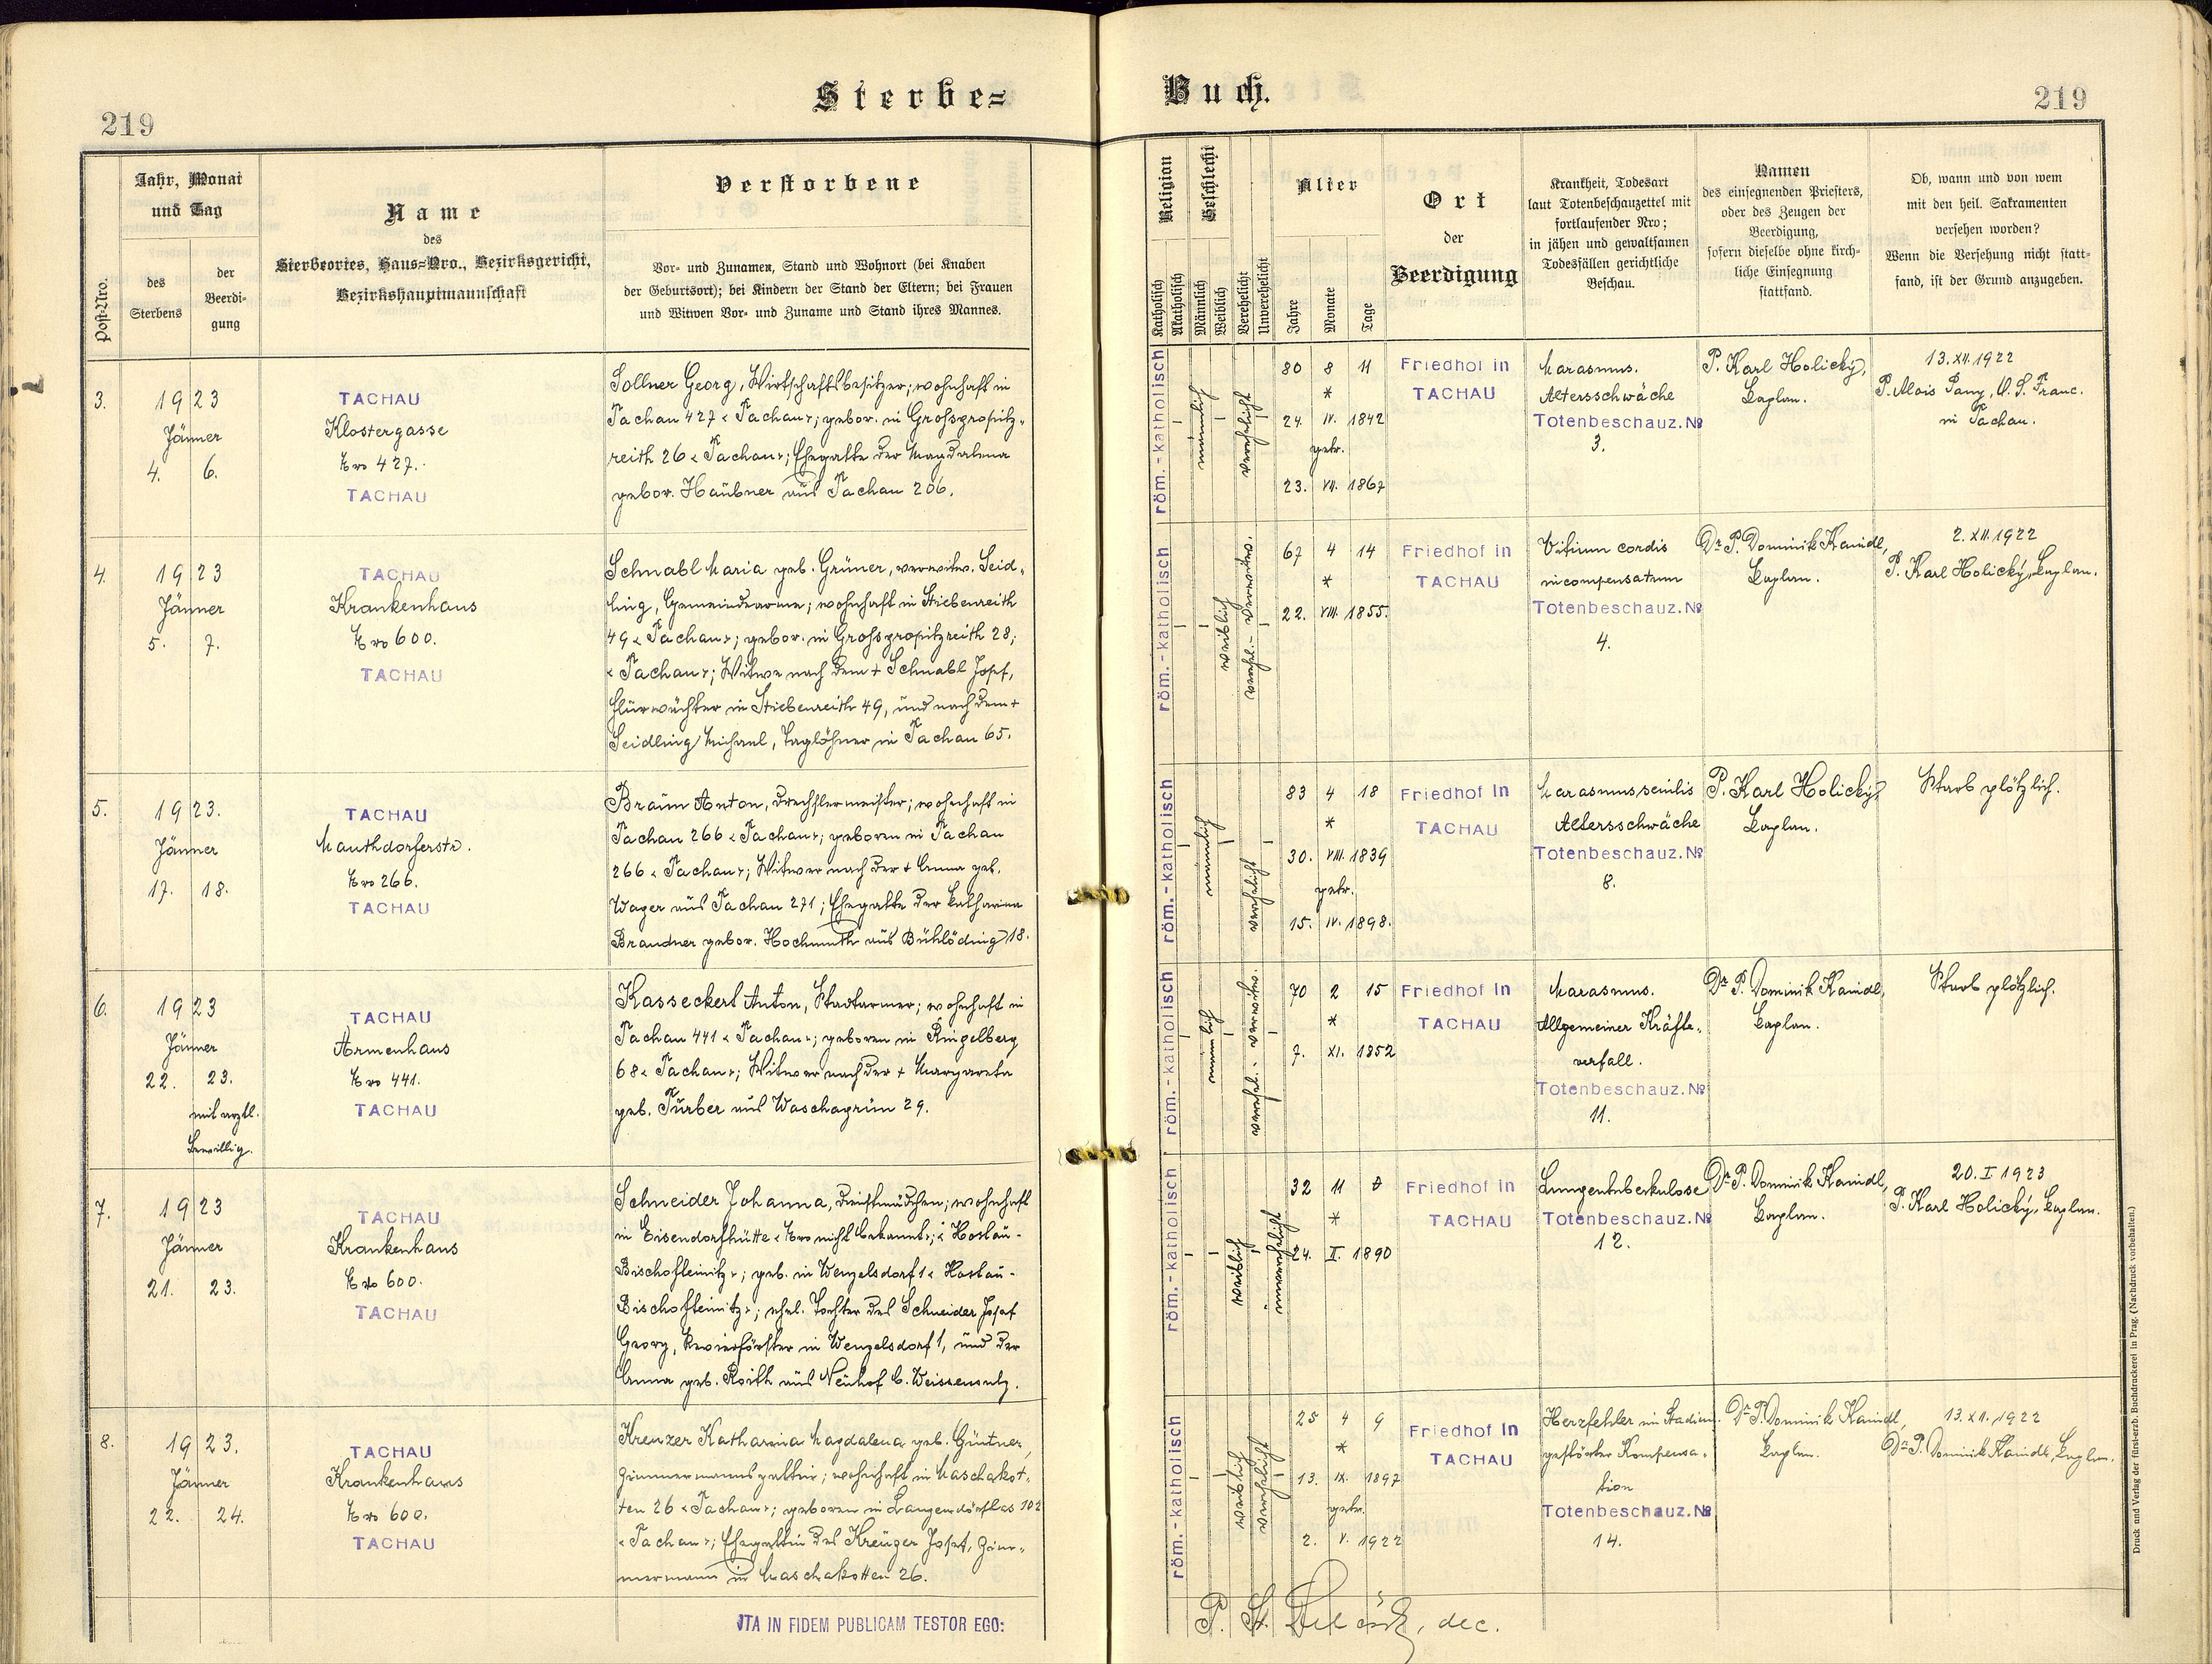 Sterbe=
219
Jahr, Monat
und Tag
des
Sterbens
der
Beerdi-
gung
Post-Nro.
Name
des
Sterbeortes, Haus=Nro., Bezirksgericht,
Bezirkshauptmannschaft
Verstorbene
Vor- und Zunamen, Stand und Wohnort (bei Knaben
der Geburtsort); bei Kindern der Stand der Eltern; bei Frauen
und Witwen Vor- und Zuname und Stand ihres Mannes.
3.
1923
Jänner
4. 6.
TACHAU
Klostergasse
Nro 427.
TACHAU
Sollner Georg, Wirtschaftsbesitzer; wohnhaft in
Tachau 427 "Tachau"; gebor. in Grossgropitz-
reith 26 "Tachau"; Ehegatte der Magdalena
gebor. Haubner aus Tachau 206.
4.
1923
Jänner
5. 7.
TACHAU
Krankenhaus
Nro 600.
TACHAU
Schnabl Maria geb. Grüner, verwitw. Seid-
ling, Gemeindearme; wohnhaft in Stiebenreith
49 "Tachau"; gebor. in Grossgropitzreith 28;
"Tachau"; Witwe nach dem + Schnabl Josef,
Flurwächter in Stiebenreith 49, und nach dem +
Seidling Michael, Taglöhner in Tachau 65.
5.
1923.
Jänner
17. 18.
TACHAU
Mauthdorferstr.
Nro 266.
TACHAU
Braun Anton, Drechslermeister; wohnhaft in
Tachau 266 "Tachau"; geboren in Tachau
266 "Tachau"; Witwer nach der + Anna geb.
Wager aus Tachau 271; Ehegatte der Katharina
Brandner gebor. Hochmuth aus Bühlöding 18.
6.
1923
Jänner
22. 23.
mit arztl.
Bewillig.
TACHAU
Armenhaus
Nro 441.
TACHAU
Kasseckert Anton, Stadtarmer; wohnhaft in
Tachau 441 "Tachau"; geboren in Ringelberg
68 "Tachau"; Witwer nach der + Margareta
geb. Türber aus Waschagrün 29.
7.
1923
Jänner
21. 23.
TACHAU
Krankenhaus
Nro 600.
TACHAU
Schneider Johanna, Dienstmädchen; wohnhaft
in Eisendorfhütte "Nro nicht bekannt"; "Hostau-
Bischofteinitz"; geb. in Wenzelsdorf 1 "Hostau-
Bischofteinitz"; ehel. Tochter des Schneider Josef
Georg, Revierförster in Wenzelsdorf 1, und der
Anna geb. Roith aus Neuhof b. Weissensulz.
8.
1923.
Jänner
22. 24.
TACHAU
Krankenhaus
Nro 600.
TACHAU
Kreuzer Katharina Magdalena geb. Güntner,
Zimmermannsgattin; wohnhaft in Maschakot-
ten 26 "Tachau"; geboren in Langendörflas 102
"Tachau"; Ehegattin des Kreuzer Josef, Zim-
mermann in Maschakotten 26.
ITA IN FIDEM PUBLICAM TESTOR EGO:
Buch.
219
Religion
Katholisch
Akatholisch
Geschlecht
Männlich
Weiblich
Verehelicht
Unverehelicht
Alter
Jahre
Monate
Tage
Ort
der
Beerdigung
Krankheit, Todesart
laut Totenbeschauzettel mit
fortlaufender Nro;
in jähen und gewaltsamen
Todesfällen gerichtliche
Beschau.
Namen
des einsegnenden Priesters,
oder des Zeugen der
Beerdigung,
sofern dieselbe ohne kirch-
liche Einsegnung
stattfand.
Ob, wann und von wem
mit den heil. Sakramenten
versehen worden?
Wenn die Versehung nicht statt-
fand, ist der Grund anzugeben.
röm.-katholisch
männlich
verehelicht
80 8 11
*
24. IV. 1842
getr.
23. VII. 1867
Friedhof in
TACHAU
Marasmus.
Altersschwäche
Totenbeschauz. №
3.
P. Karl Holický,
Kaplan.
13. XII. 1922
P. Alois Pany, O. S. Franc.
in Tachau.
röm.-katholisch
weiblich
verehel.- verwitw.
67 4 14
*
22. VIII. 1855.
Friedhof in
TACHAU
Vitium cordis
incompensatum
Totenbeschauz. №
4.
Dr. P. Dominik Kaindl,
Kaplan.
2. XII. 1922
P. Karl Holický, Kaplan.
röm.-katholisch
männlich
verehelicht
83 4 18
*
30. VIII. 1839
getr.
15. IV. 1898.
Friedhof in
TACHAU
Marasmus senilis
Altersschwäche
Totenbeschauz. №
8.
P. Karl Holický,
Kaplan.
Starb plötzlich.
röm.-katholisch
männlich
verehel.- verwitw.
70 2 15
*
7. XI. 1852
Friedhof in
TACHAU
Marasmus.
Allgemeiner Kräfte-
verfall.
Totenbeschauz. №
11.
Dr. P. Dominik Kaindl,
Kaplan.
Starb plötzlich.
röm.-katholisch
weiblich
unverehelicht
32 11
*
24. I. 1890
Friedhof in
TACHAU
Lungentuberkulose
Totenbeschauz. №
12.
Dr. P. Dominik Kaindl,
Kaplan.
20. I 1923
P. Karl Holický, Kaplan.
röm.-katholisch
weiblich
verehelicht
25 4 9
*
13. IX. 1897
getr.
2. V. 1922
Friedhof in
TACHAU
Herzfehler im Stadium
gestörter Kompensa-
tion
Totenbeschauz. №
14.
Dr. P. Dominik Kaindl,
Kaplan.
13. XI. 1922
Dr. P. Dominik Kaindl, Kaplan.
dec.
Druck und Verlag der fürst-erzb. Buchdruckerei in Prag. (Nachdruck vorbehalten.)